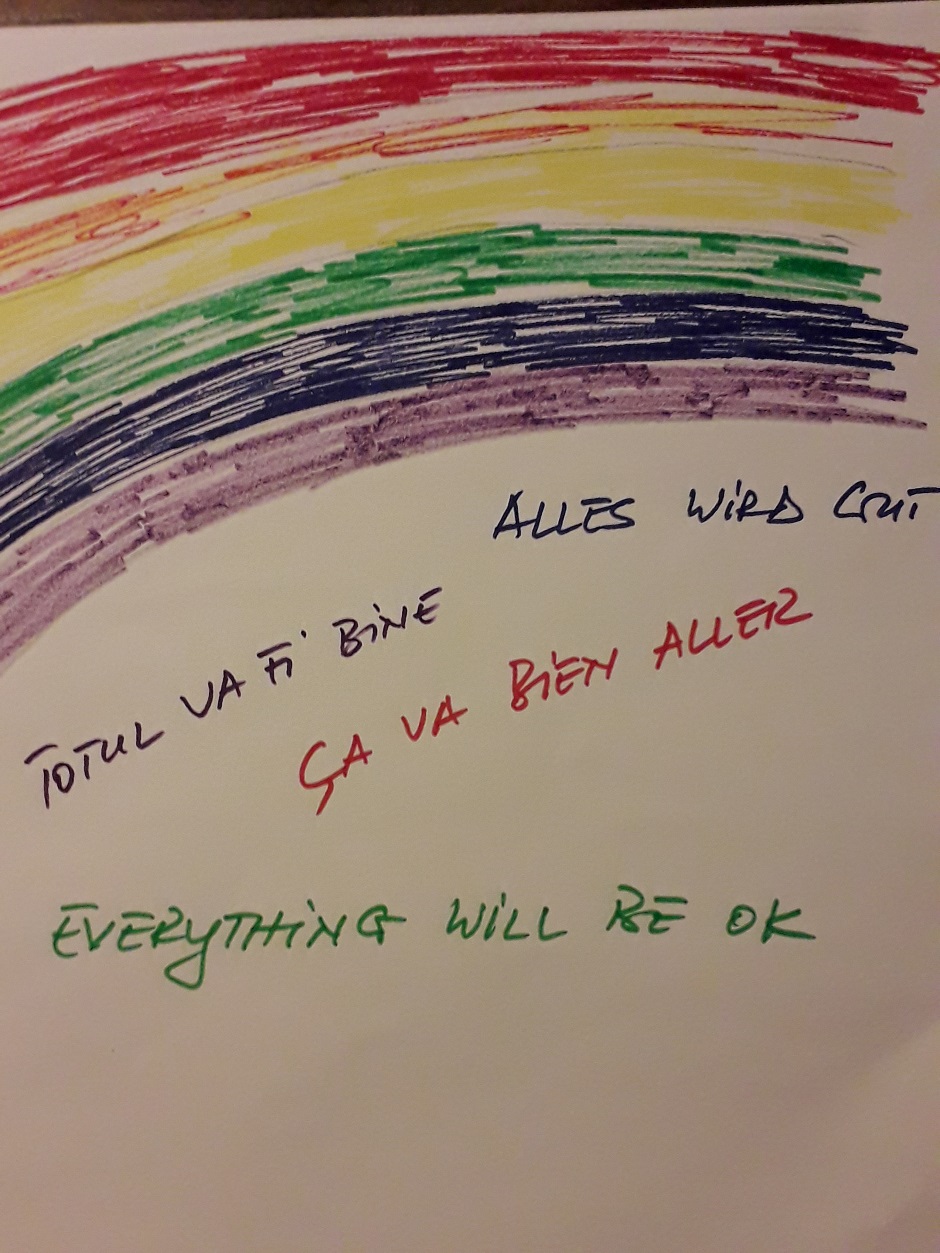 ALLES WIRD GUT
TOTUL VA FI BINE
ÇA VA BIEN ALLER
EVERYTHING WILL BE OK